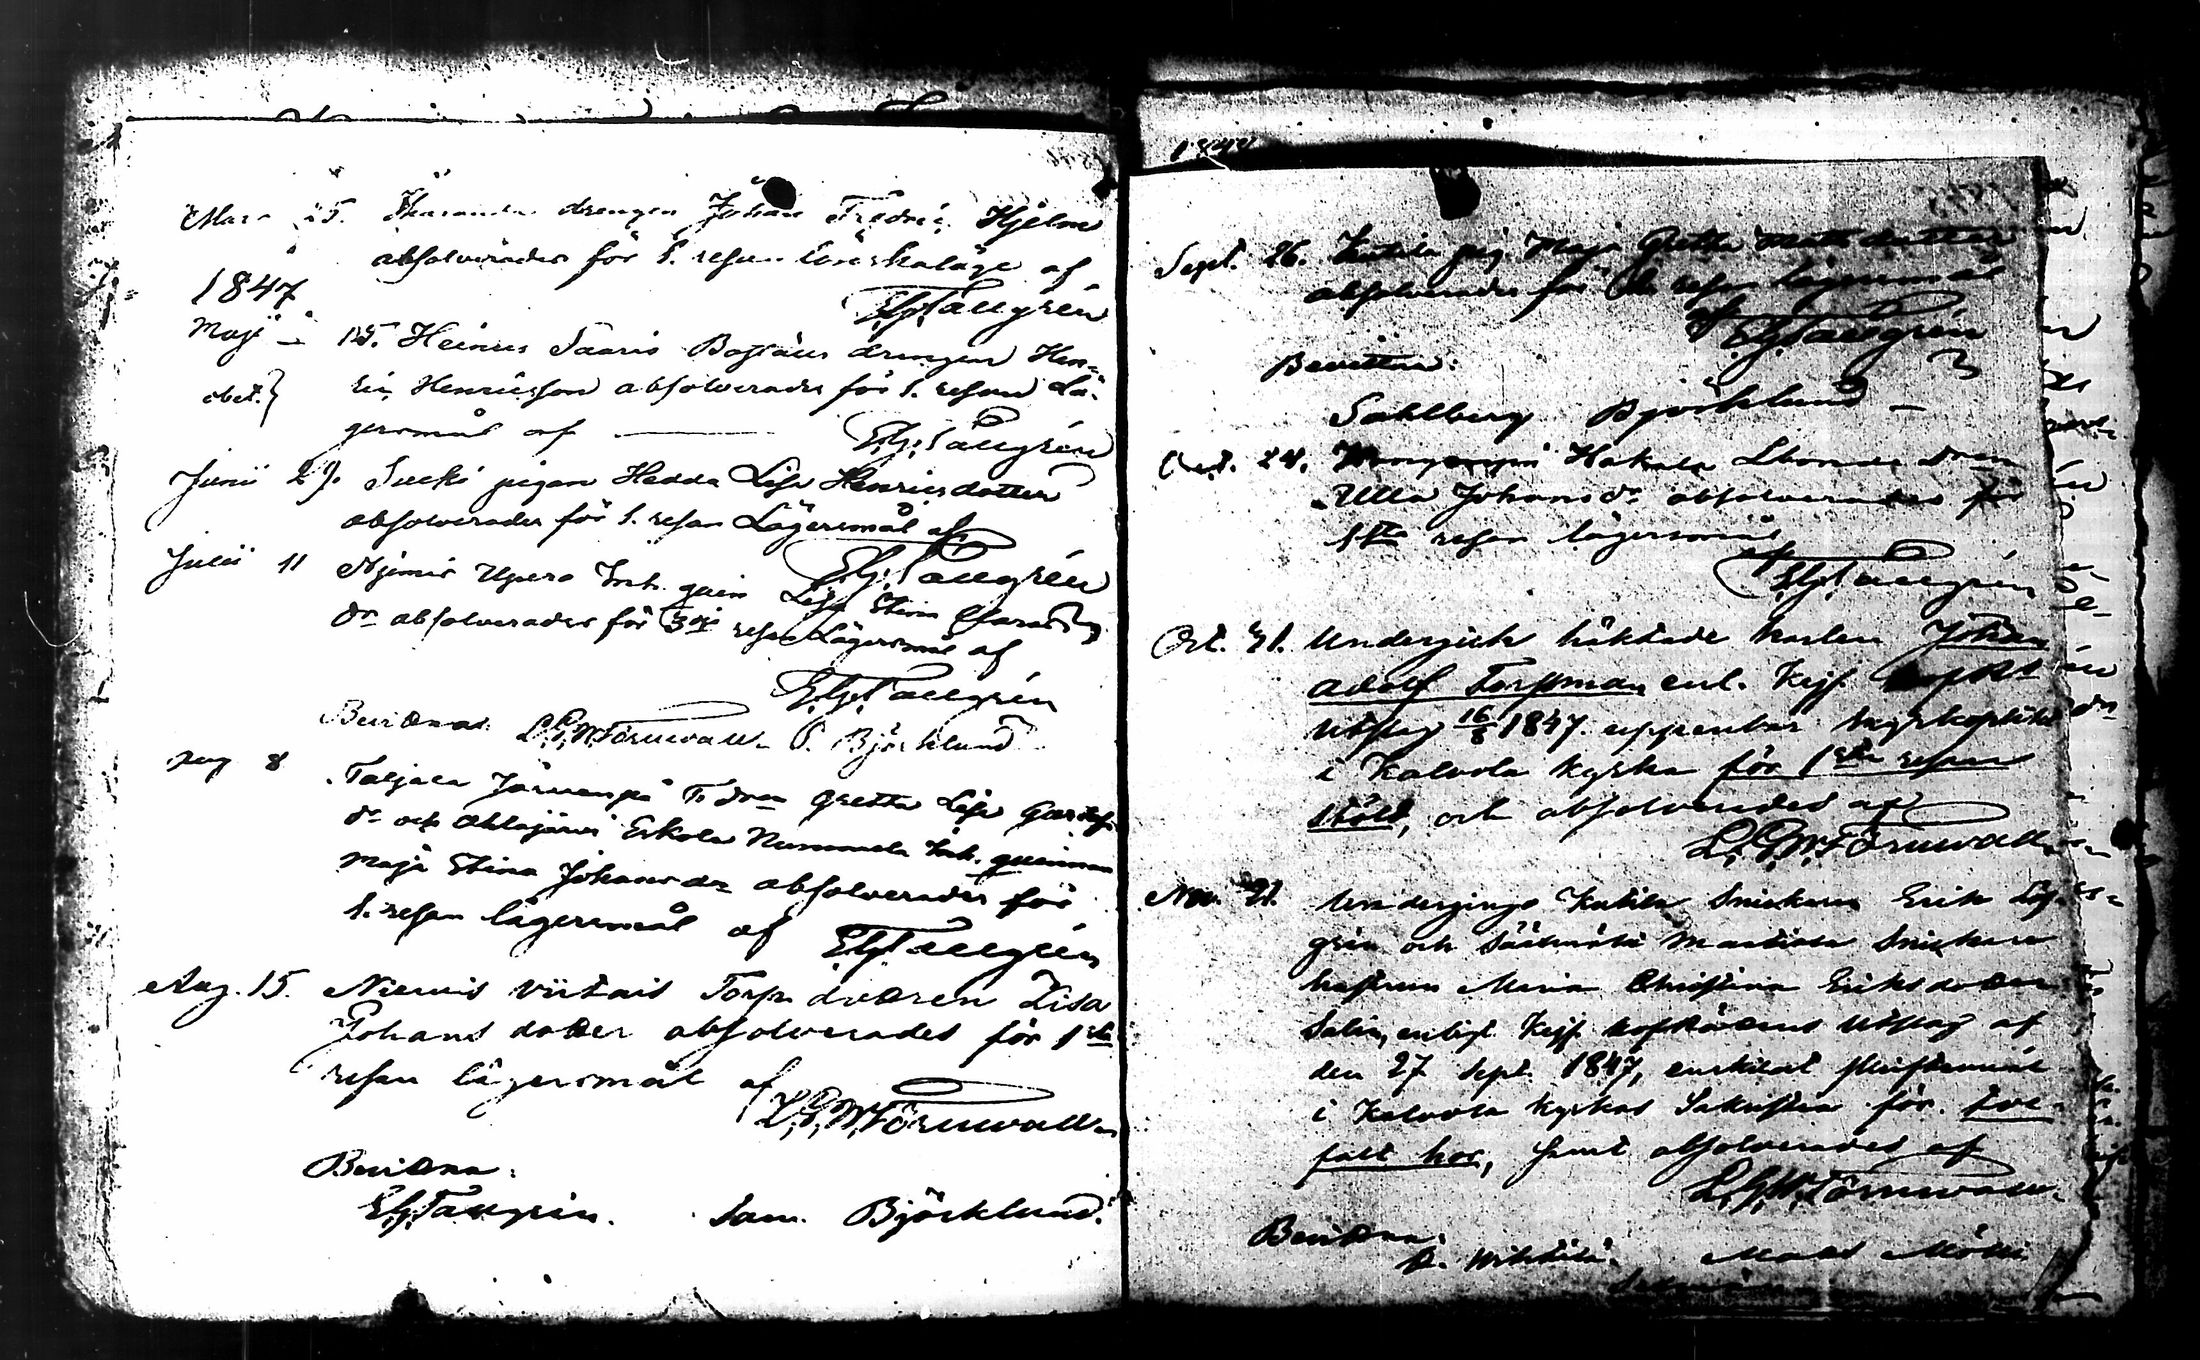 Mars 25. drengen Johan Fredric Hjelm
absolverades för 1. resan Lönskaläge af
E.G. Tallgrén
1847
Maji 15. Heinus Saaris Bastäus drengen Hen-
ric Henricsson absolverades för 1. resan Lä-
obet. gersmål af E.G. Tallgrén
Junii 29. Sucki pigan Hedda Lisa Henricsdotter
absolverades för 1. resan Lägersmål af
E.G. Tallgrén
Julii 11 Inh. qvin Lisa Stina
dr absolverades för 3dje resan Lägersmål af
E.G. Tallgrén
Bevittnas. L.G.W. Törnwall. S. Björklund
Aug 8 Taljala Järvenpä T. dren Gretta Lisa
dr och Ahlajärvi Eskola Nummela Inh. qvinnan
Maja Stina Johansdr absolverades för
1. resan lägersmål af E.G. Tallgrén
Aug. 15. Niemis Viitais Torp. dottren Lisa
Johans dotter absolverades för 1sta
resan lägersmål af
L.G.W. Törnwall.
Bevittna:
E.G. Tallgrén. Sam. Björklund.
1847
Sept. 26. Katila pig. Maja Gretta Matts dotter
absolverades för resan lägersmål
af E.G. Tallgrén
Bevittna:
Sahlberg Björklund
Oct. 24. Hakala dren
Ulla Johans dr absolverades för
1sta resan lägersmål
af
E.G. Tallgrén
Oct. 31. Undergick häktade karlen Johan
Adolf Torpman enl. Kejs. HofRts
Utslag 16/8 1847. uppenbar kyrkoplikt
i Kalvola kyrka för 1sta resan
stöld, och absolverades af
L.G.W. Törnwall.
Nov. 21. Undergingo Katila Snickaren Erik Löf-
grén och Sääksmäki Mantiala Snickare
hustrun Maria Christina Eriksdotter
Salin, enligt Kejs. HofRättens Utslag af
den 27 Sept. 1847, enskilat skriftermål
i Kalvola kyrkas Sakristia för tve-
falt hor, samt absolverades af
L.G.W. Törnwall.
Bevittna:
Mats